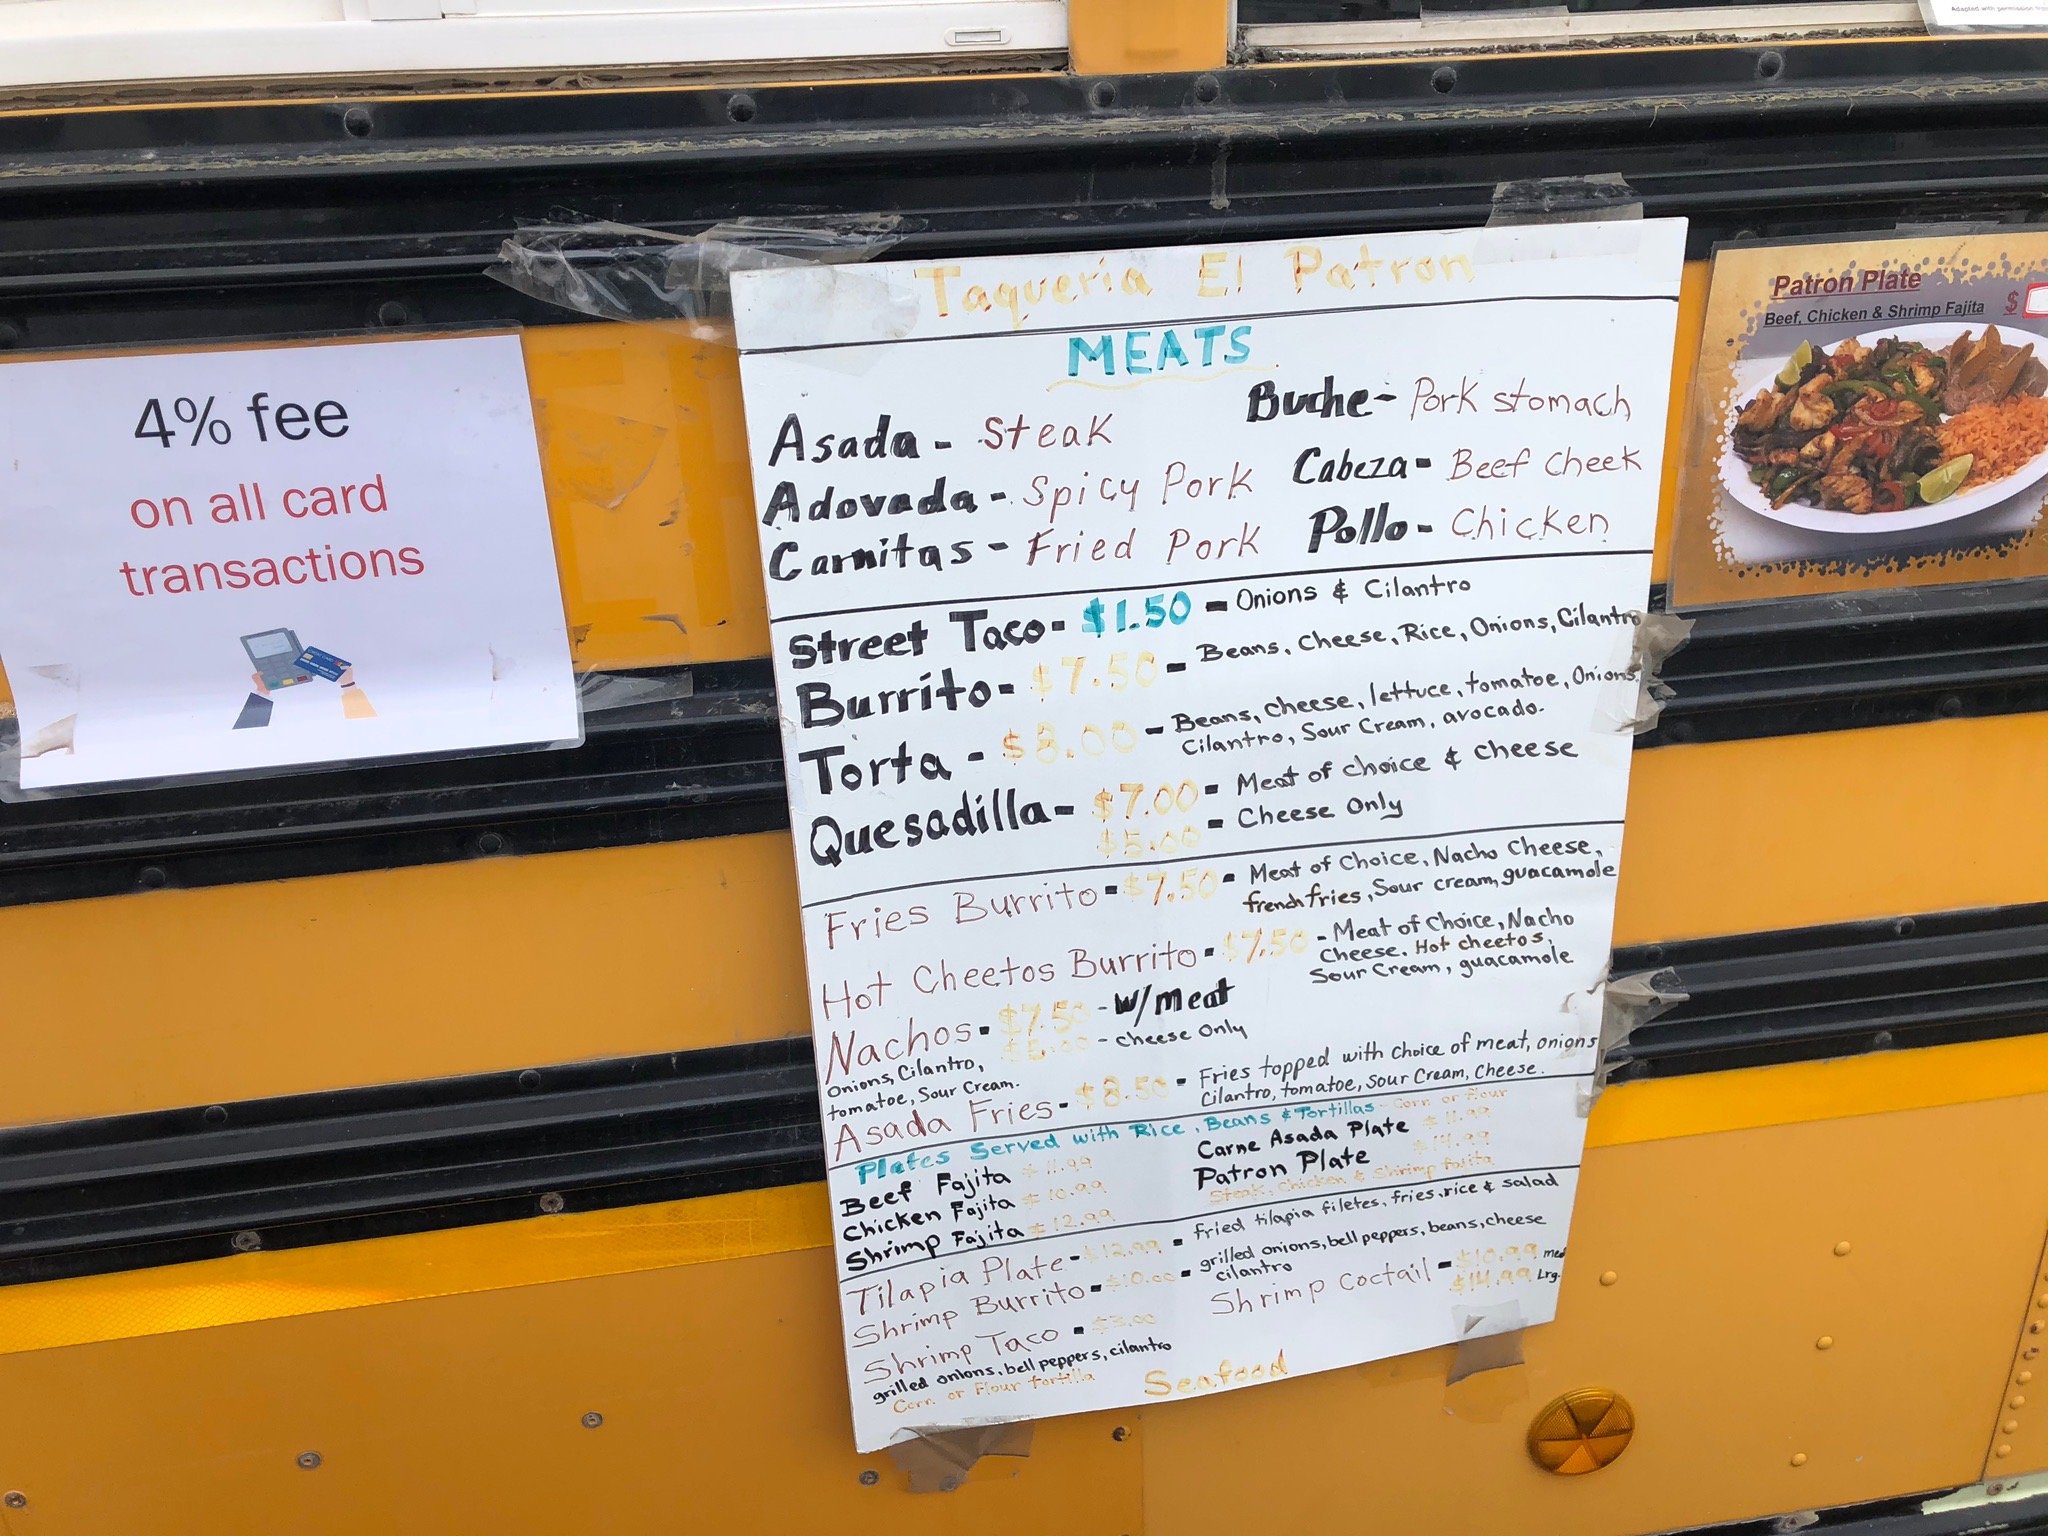 Adapted with permission
4% fee
on all card
transactions
Taqueria El Patron
MEATS
Asada - Steak
Adovada - Spicy Pork
Carnitas - Fried Pork
Buche - Pork stomach
Cabeza - Beef Cheek
Pollo - Chicken
Street Taco - $1.50 - Onions & Cilantro
Burrito - $7.50 - Beans, Cheese, Rice, Onions, Cilantro
Torta - $8.00 - Beans, Cheese, lettuce, tomatoe, Onions.
Cilantro, Sour Cream, avocado.
Quesadilla - $7.00 - Meat of choice & cheese
$5.00 - Cheese Only
Fries Burrito - $7.50 - Meat of Choice, Nacho Cheese,
french fries, Sour cream, guacamole
Hot Cheetos Burrito - $7.50 - Meat of Choice, Nacho
Cheese. Hot cheetos,
Sour Cream, guacamole
Nachos - $7.50 - w/meat
$5.00 - cheese Only
Onions, Cilantro,
tomatoe, Sour Cream.
Asada Fries - $8.50 - Fries topped with choice of meat, onions
Cilantro, tomatoe, Sour Cream, Cheese.
Plates Served with Rice, Beans & Tortillas - Corn or Flour
Beef Fajita $11.99
Chicken Fajita $10.99
Shrimp Fajita $12.99
Carne Asada Plate $11.99
Patron Plate $14.99
Steak, Chicken & Shrimp fajita
Tilapia Plate - $12.99 - fried tilapia filetes, fries, rice & salad
Shrimp Burrito - $10.00 - grilled onions, bell peppers, beans, cheese
cilantro
Shrimp Taco - $3.00
grilled onions, bell peppers, cilantro
Corn or Flour tortilla
Shrimp Coctail - $10.99 med
$14.99 Lrg.
Seafood
Patron Plate
Beef, Chicken & Shrimp Fajita $